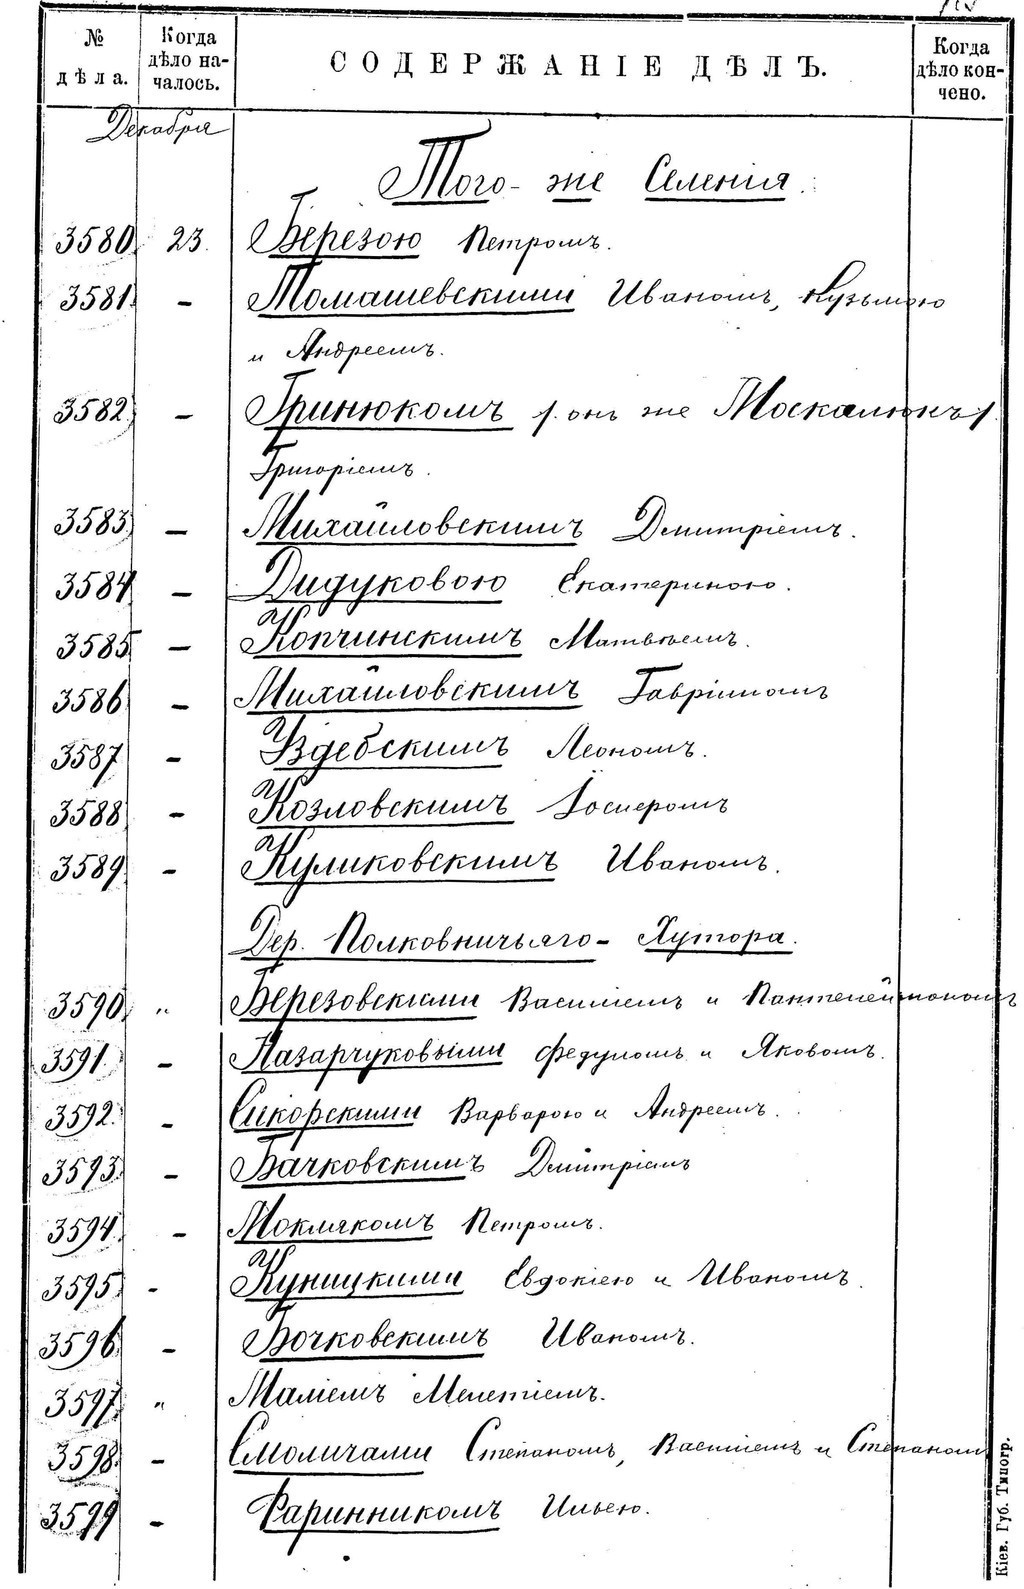 № дѣла.
Когда дѣло началось.
СОДЕРЖАНІЕ ДѢЛЪ.
Когда дѣло кончено.
Декабря
Того-же Селенія.
3580 23. Березою Петромъ.
3581 - Томашевскими Иваномъ, Кузьмою
и Андреемъ.
3582 - Гринюкомъ /. онъ же Москалюкъ /.
Григоріемъ.
3583 - Михайловскимъ Дмитріемъ.
3584 - Дидуковою Екатериною.
3585 - Копчинскимъ Матвѣемъ.
3586 - Михайловскимъ Гавріиломъ
3587 - Уздебскимъ Леономъ.
3588 - Козловскимъ
3589 - Куликовскимъ Иваномъ.
Дер. Полковничьяго-Хутора.
3590 „ Березовскими Василіемъ и Пантелеймономъ
3591 - Назарчуковыми Федуломъ и Яковомъ.
3592. - Сикорскими Варварою и Андреемъ.
3593. - Бачковскимъ Дмитріемъ
3594 - Моклякомъ Петромъ.
3595 - Куницкими Евдокіею и Иваномъ.
3596 - Бочковскимъ Иваномъ.
3597 „ Маліемъ Мелетіемъ.
3598 - Смоличами Степаномъ, Василіемъ и Степаном
3599 - Фаринникомъ Ильею.
Кіев. Губ. Типогр.